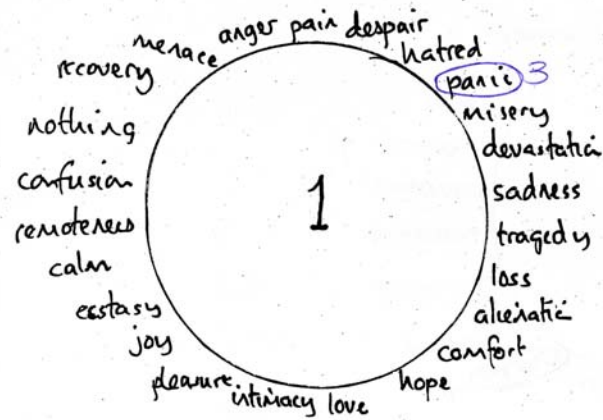 anger pain despair
hatred
panic 3
misery
devastatin
sadness
tragedy
loss
alienatin
comfort
hope
love
intimacy
pleasure
joy
ecstasy
calm
remoteness
confusion
nothing
recovery
menace
1